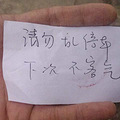 请勿乱停车
下次不客气